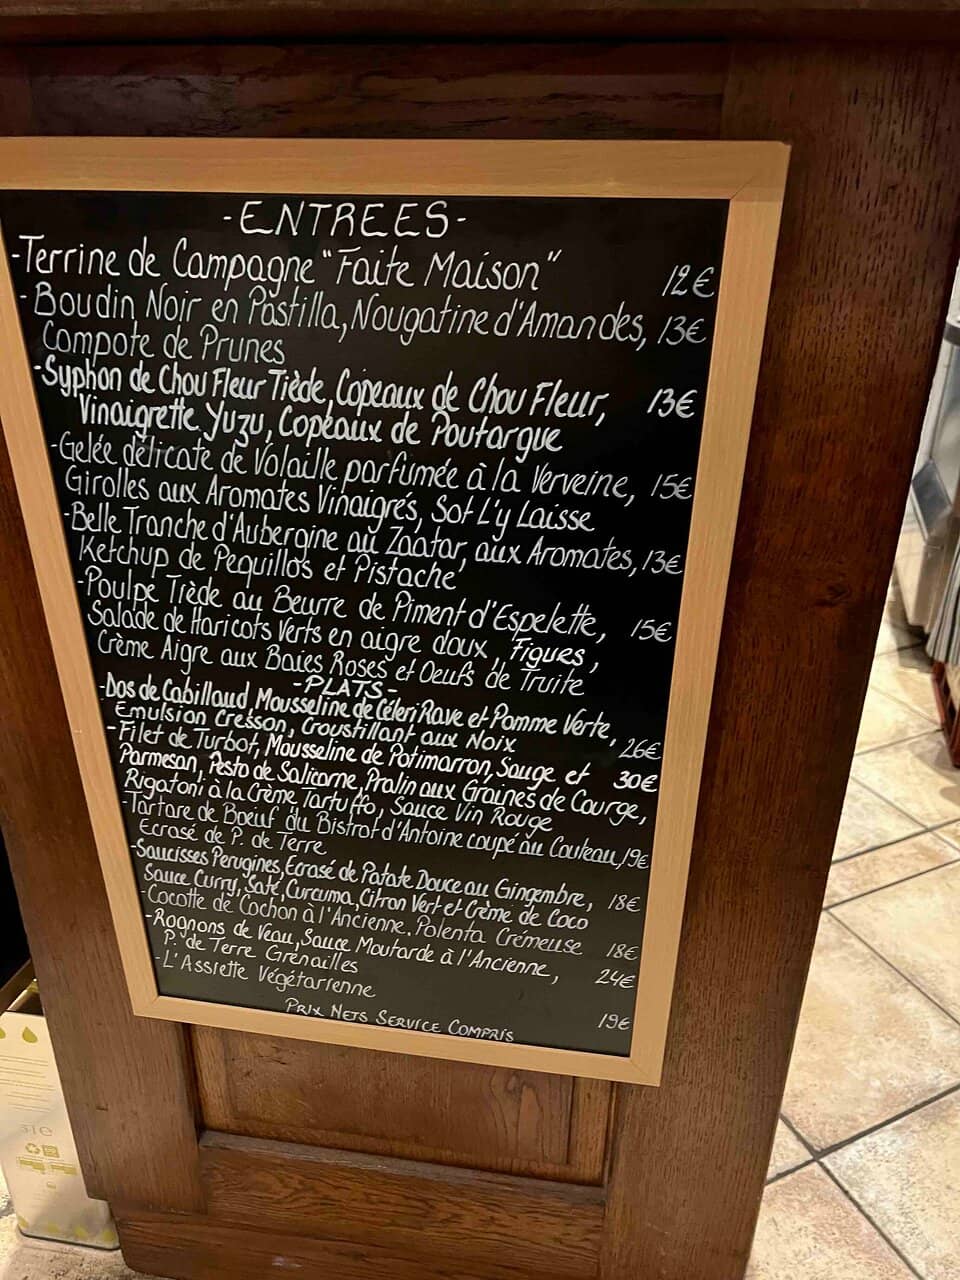 -ENTREES-
-Terrine de Campagne "Faite Maison" 12€
-Boudin Noir en Pastilla, Nougatine d'Amandes, 13€
Compote de Prunes
-Syphon de Chou Fleur Tiède, Copeaux de Chou Fleur, 13€
Vinaigrette Yuzu, Copeaux de Poutargue
-Gelée délicate de Volaille parfumée à la Verveine, 15€
Girolles aux Aromates Vinaigrés, Sot L'y Laisse
-Belle Tranche d'Aubergine au Zaatar, aux Aromates, 13€
Ketchup de Pequillos et Pistache
-Poulpe Tiède au Beurre de Piment d'Espelette, 15€
Salade de Haricots Verts en aigre doux, Figues,
Crème Aigre aux Baies Roses et Oeufs de Truite
-PLATS-
-Dos de Cabillaud, Mousseline de Céleri Rave et Pomme Verte, 26€
Emulsion Cresson, Croustillant aux Noix
-Filet de Turbot, Mousseline de Potimarron, Sauge et 30€
Parmesan, Pesto de Salicorne, Pralin aux Graines de Courge,
Rigatoni à la Crème Tartuffo, Sauce Vin Rouge
-Tartare de Boeuf du Bistrot d'Antoine coupé au Couteau, 19€
Ecrasé de P. de Terre
-Saucisses Perugines, Ecrasé de Patate Douce au Gingembre, 18€
Sauce Curry, Saté, Curcuma, Citron Vert et Crème de Coco
-Cocotte de Cochon à l'Ancienne, Polenta Crémeuse 18€
-Rognons de Veau, Sauce Moutarde à l'Ancienne, 24€
P. de Terre Grenailles
-L'Assiette Végétarienne 19€
PRIX NETS SERVICE COMPRIS